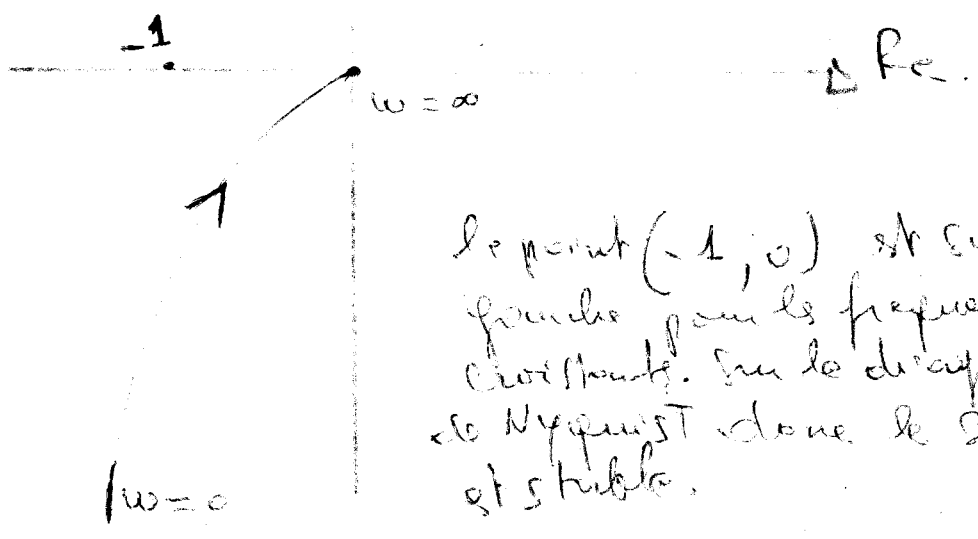 -1
Re.
ω = ∞
le point (-1 ; 0) est
gauche pour les
croissants. Sur le
de NyquisT donc le
est stable.
ω = 0